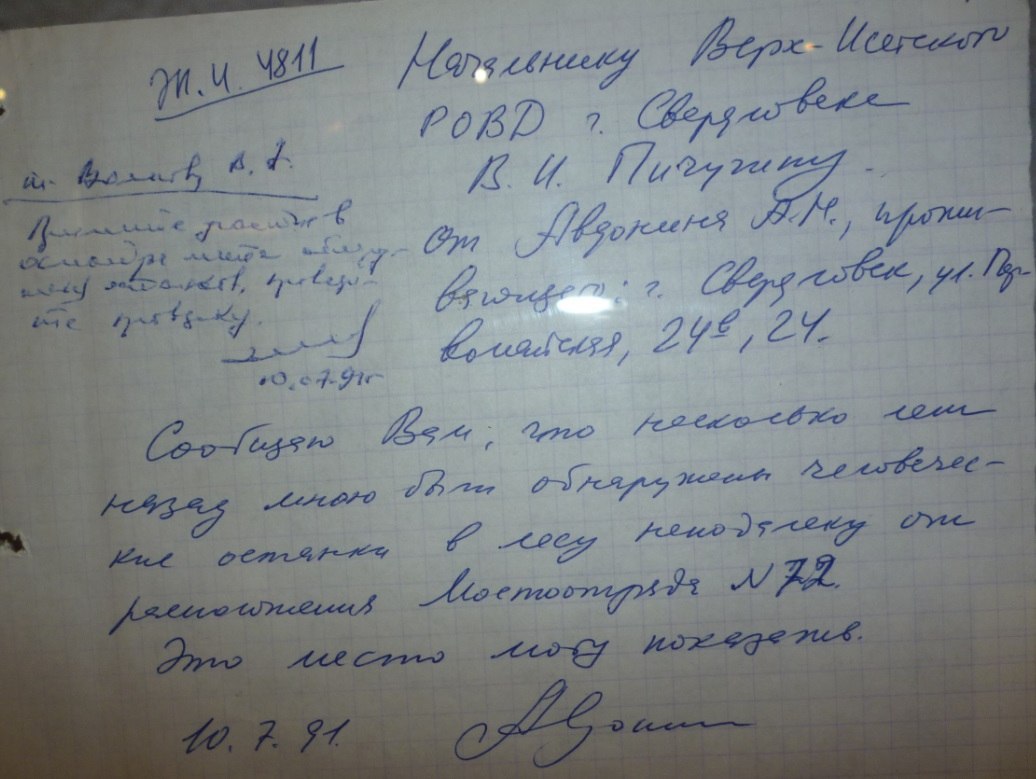 Ж.И. 4811
Начальнику Верх-Исетского
РОВД г. Свердловска
В. И. Пичугину
от Авдонина А.Н., прожи-
вающего: г. Свердловск, ул. Пер-
вомайская, 24в, 24.
т. В. А.
Примите участие в
осмотре места обнару-
останков, проведи-
те проверку.
10.07.91г
Сообщаю Вам, что несколько лет
назад мною были обнаружены человечес-
кие останки в лесу неподалеку от
расположения Мостоотряда N 72.
Это место могу показать.
10.7.91. Авдонин